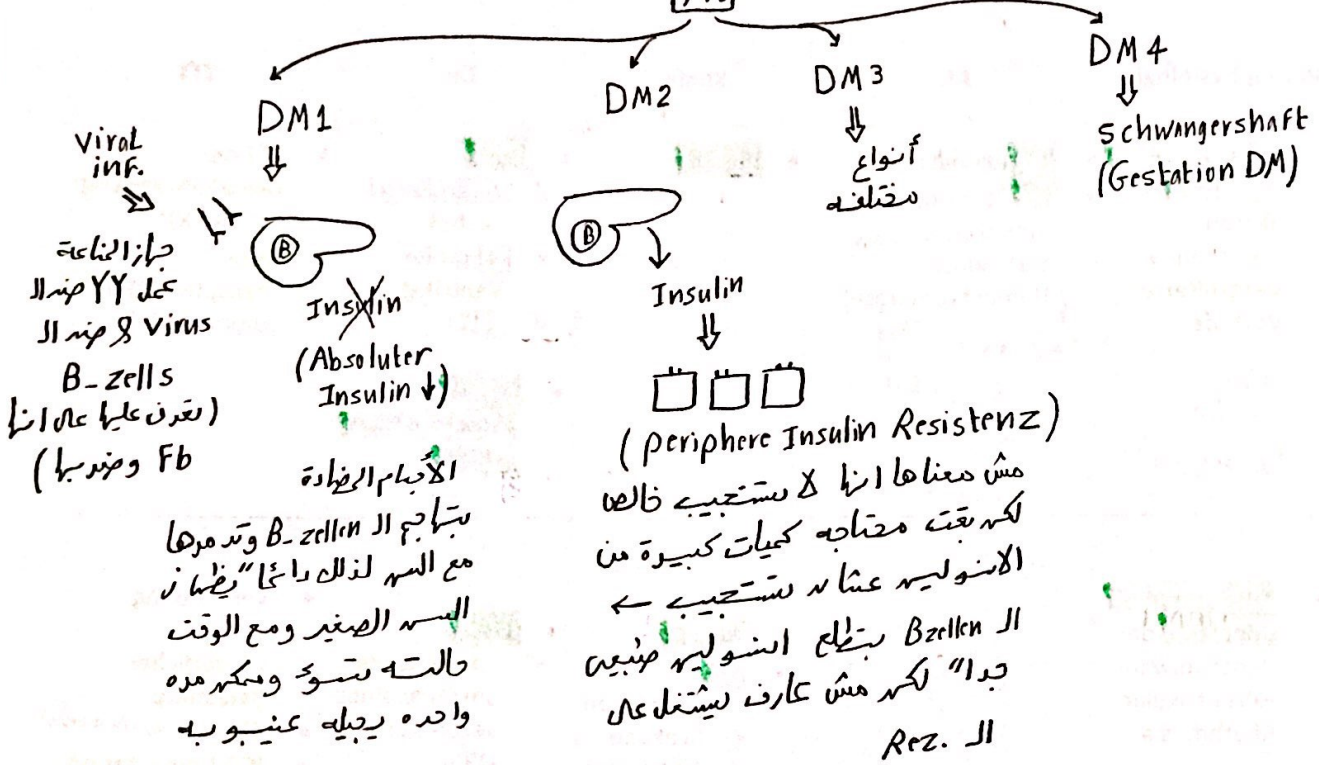 DM1
DM2
DM3
DM4
أنواع
مختلفه
Schwangershaft
(Gestation DM)
Viral
inf.
جهاز المناعة
عمل YY ضد الـ
Virus & ضد الـ
B_zells
(تعرف عليها على انها
Fb وضربها)
B
Insulin
(Absoluter
Insulin ↓)
الأجسام المضادة
بتهاجم الـ B_zellen وتدمرها
مع السن لذلك دائماً يظهر في
السن الصغير ومع الوقت
حالته بتسوء وممكن مره
واحده يجيله غيبوبه
B
Insulin
(periphere Insulin Resistenz)
مش معناها انها لا تستجيب خالص
لكن بقت محتاجه كميات كبيرة من
الانسولين عشان تستجيب ←
الـ Bzellen بتطلع انسولين طبيعي
جداً لكن مش عارف يشتغل على
الـ Rez.